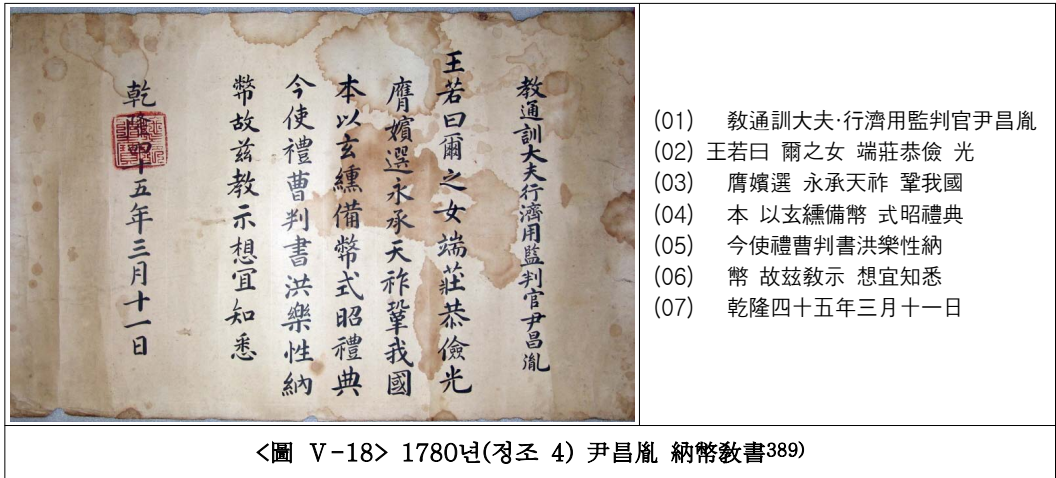 教通訓大夫行濟用監判官尹昌胤
王若曰爾之女端莊恭儉光
膺嬪選永承天祚鞏我國
本以玄纁備幣式昭禮典
今使禮曹判書洪樂性納
幣故兹教示想宜知悉
乾隆四十五年三月十一日
(01) 敎通訓大夫·行濟用監判官尹昌胤
(02) 王若曰 爾之女 端莊恭儉 光
(03) 膺嬪選 永承天祚 鞏我國
(04) 本 以玄纁備幣 式昭禮典
(05) 今使禮曹判書洪樂性納
(06) 幣 故玆敎示 想宜知悉
(07) 乾隆四十五年三月十一日
<圖 Ⅴ-18> 1780년(정조 4) 尹昌胤 納幣敎書389)